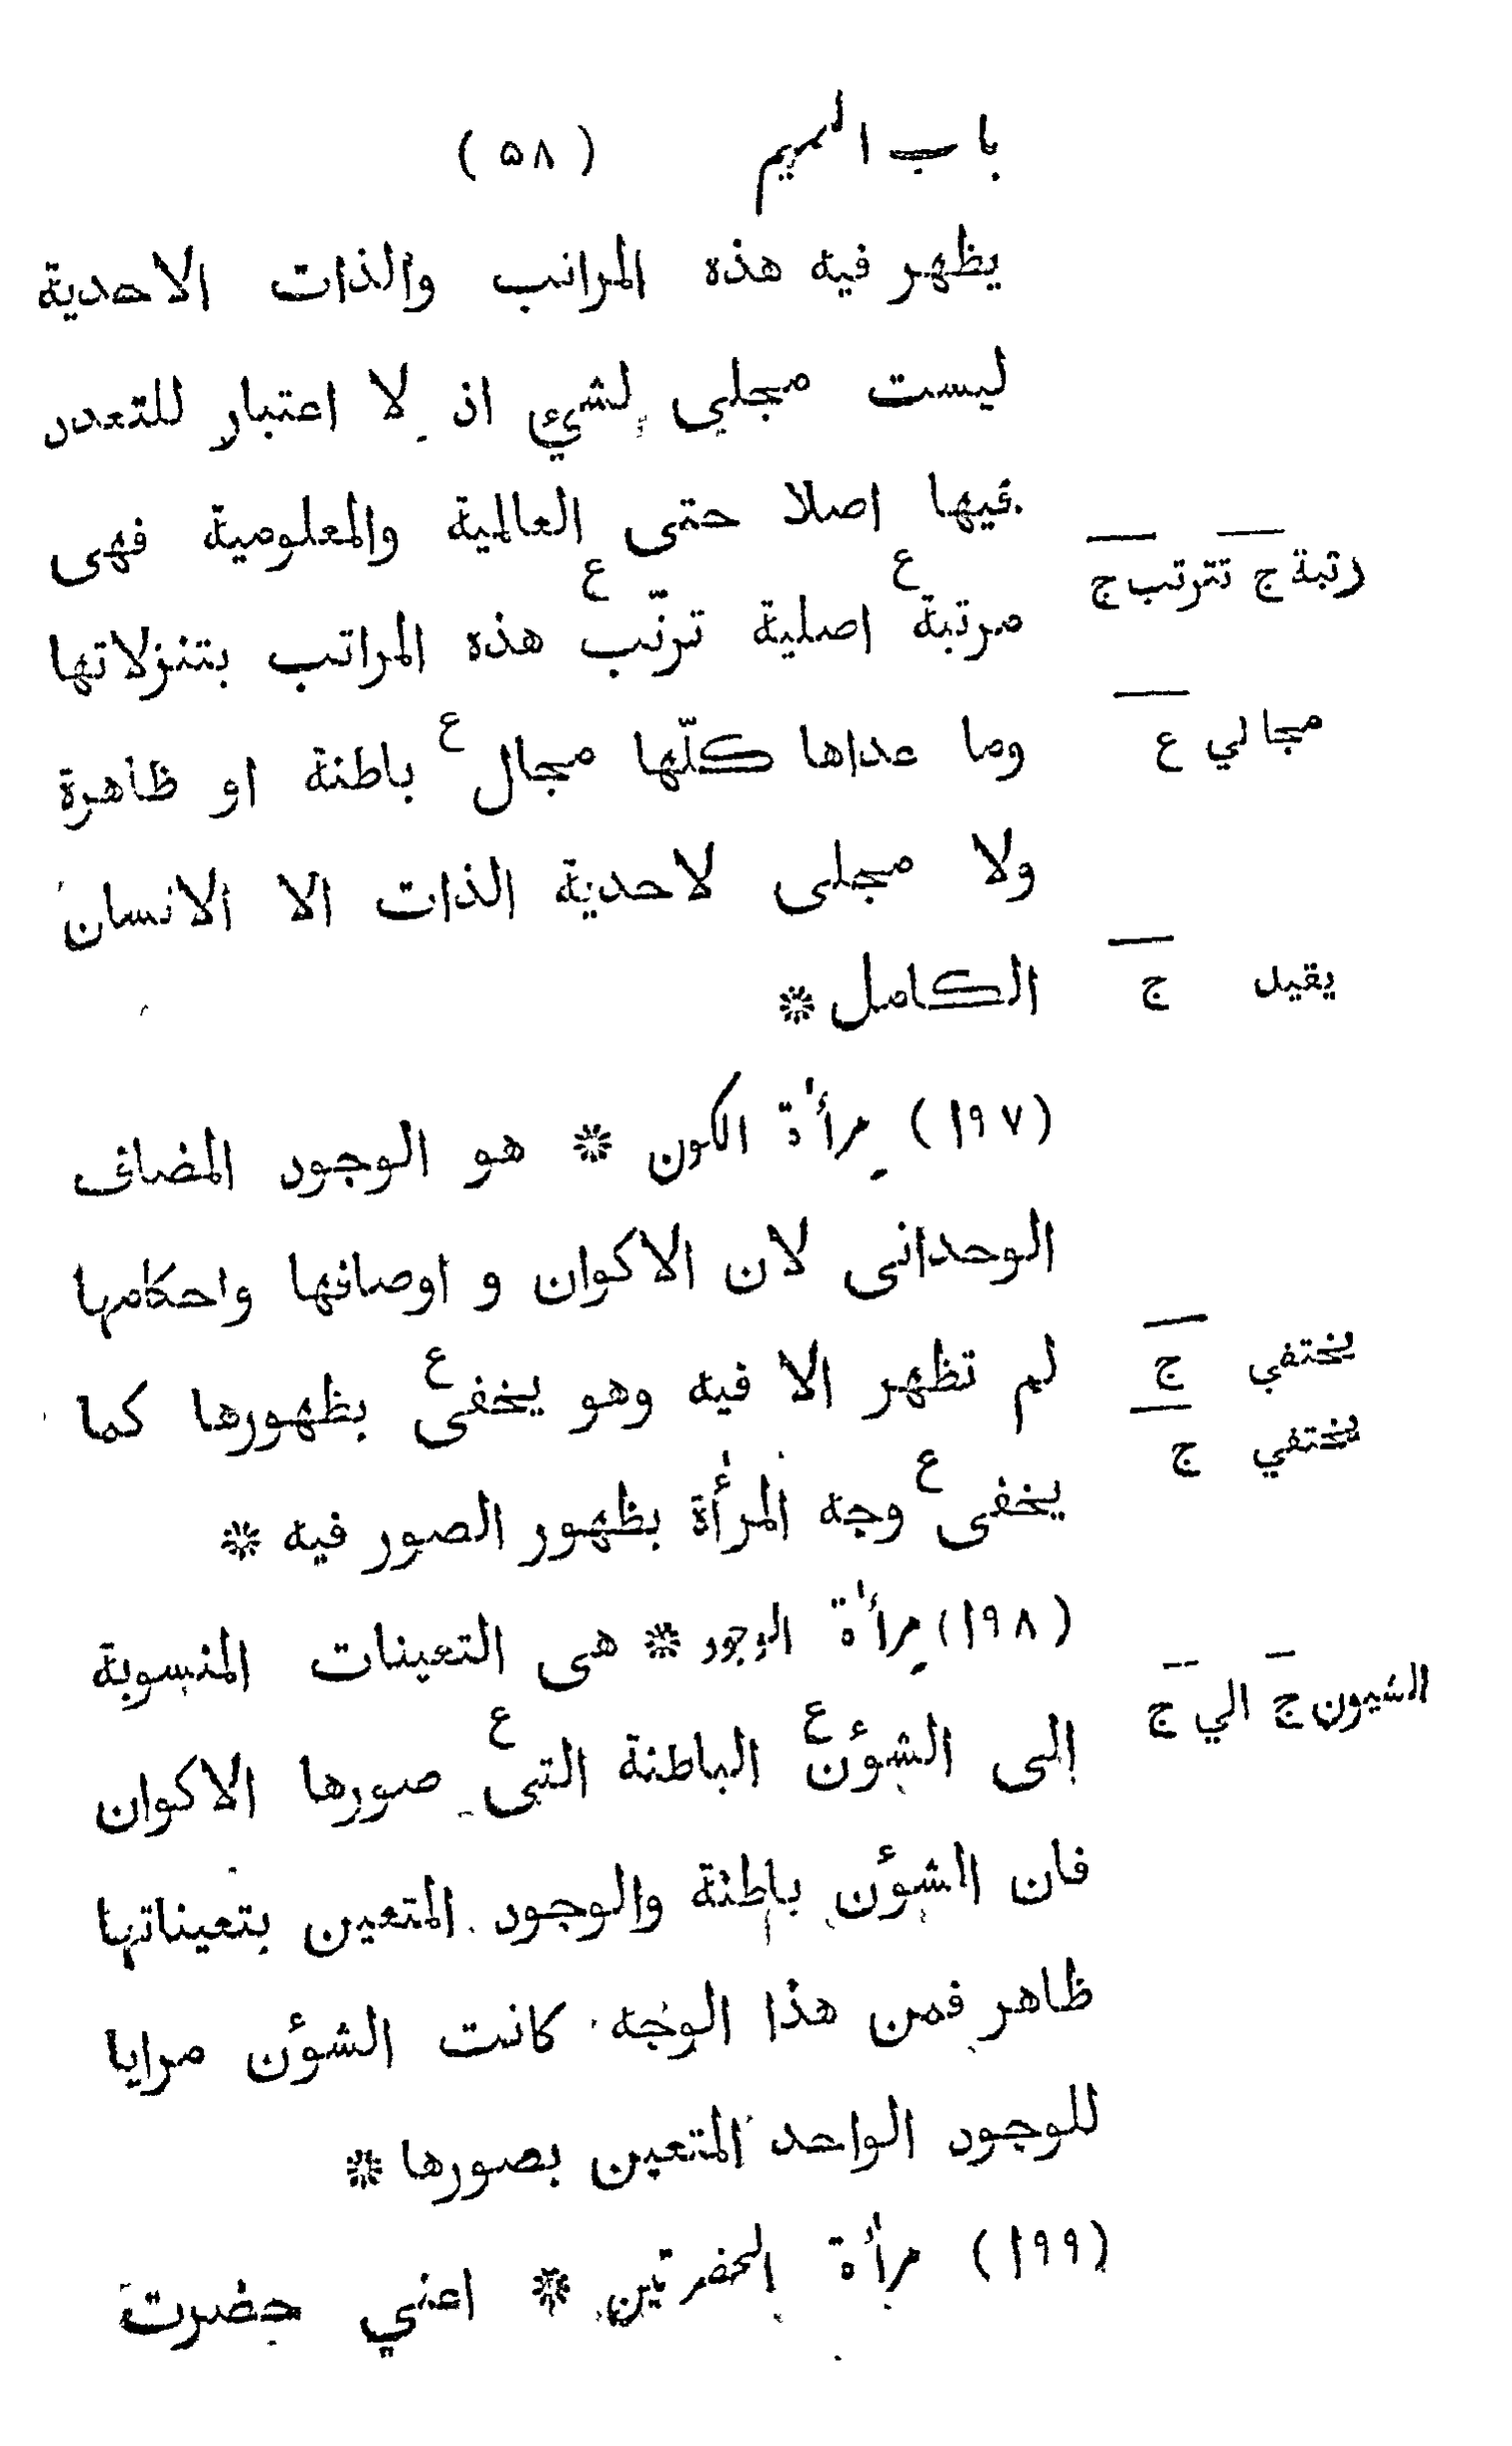 باب الميم (٥٨)
يظهر فيه هذه المراتب والذات الاحدية
ليست مجلي لشيء اذ لا اعتبار للتعدد
فيها اصلا حتى العالمية والمعلومية فهى
رتبة ج تترتب ج
مرتبة ع اصلية ترتّب ع هذه المراتب بتنزلاتها
مجالي ع
وما عداها كلّها مجال ع باطنة او ظاهرة
ولا مجلى لاحدية الذات الا الانسان
يقيد ج
الكامل *
(١٩٧) مرأة الكون * هو الوجود المضاف
الوحدانى لان الاكوان و اوصافها واحكامها
يختفي ج
لم تظهر الا فيه وهو يخفى ع بظهورها كما
يختفي ج
يخفى ع وجه المرأة بظهور الصور فيه *
(١٩٨) مرأة الوجود * هى التعينات المنسوبة
الشيون ج الي ج
إلى الشؤن ع الباطنة التى ع صورها الاكوان
فان الشؤن باطنة والوجود المتعين بتعيناتها
ظاهر فمن هذا الوجه كانت الشؤن مرايا
للوجود الواحد المتعين بصورها *
(١٩٩) مرأة الحضرتين * اعني حضرت